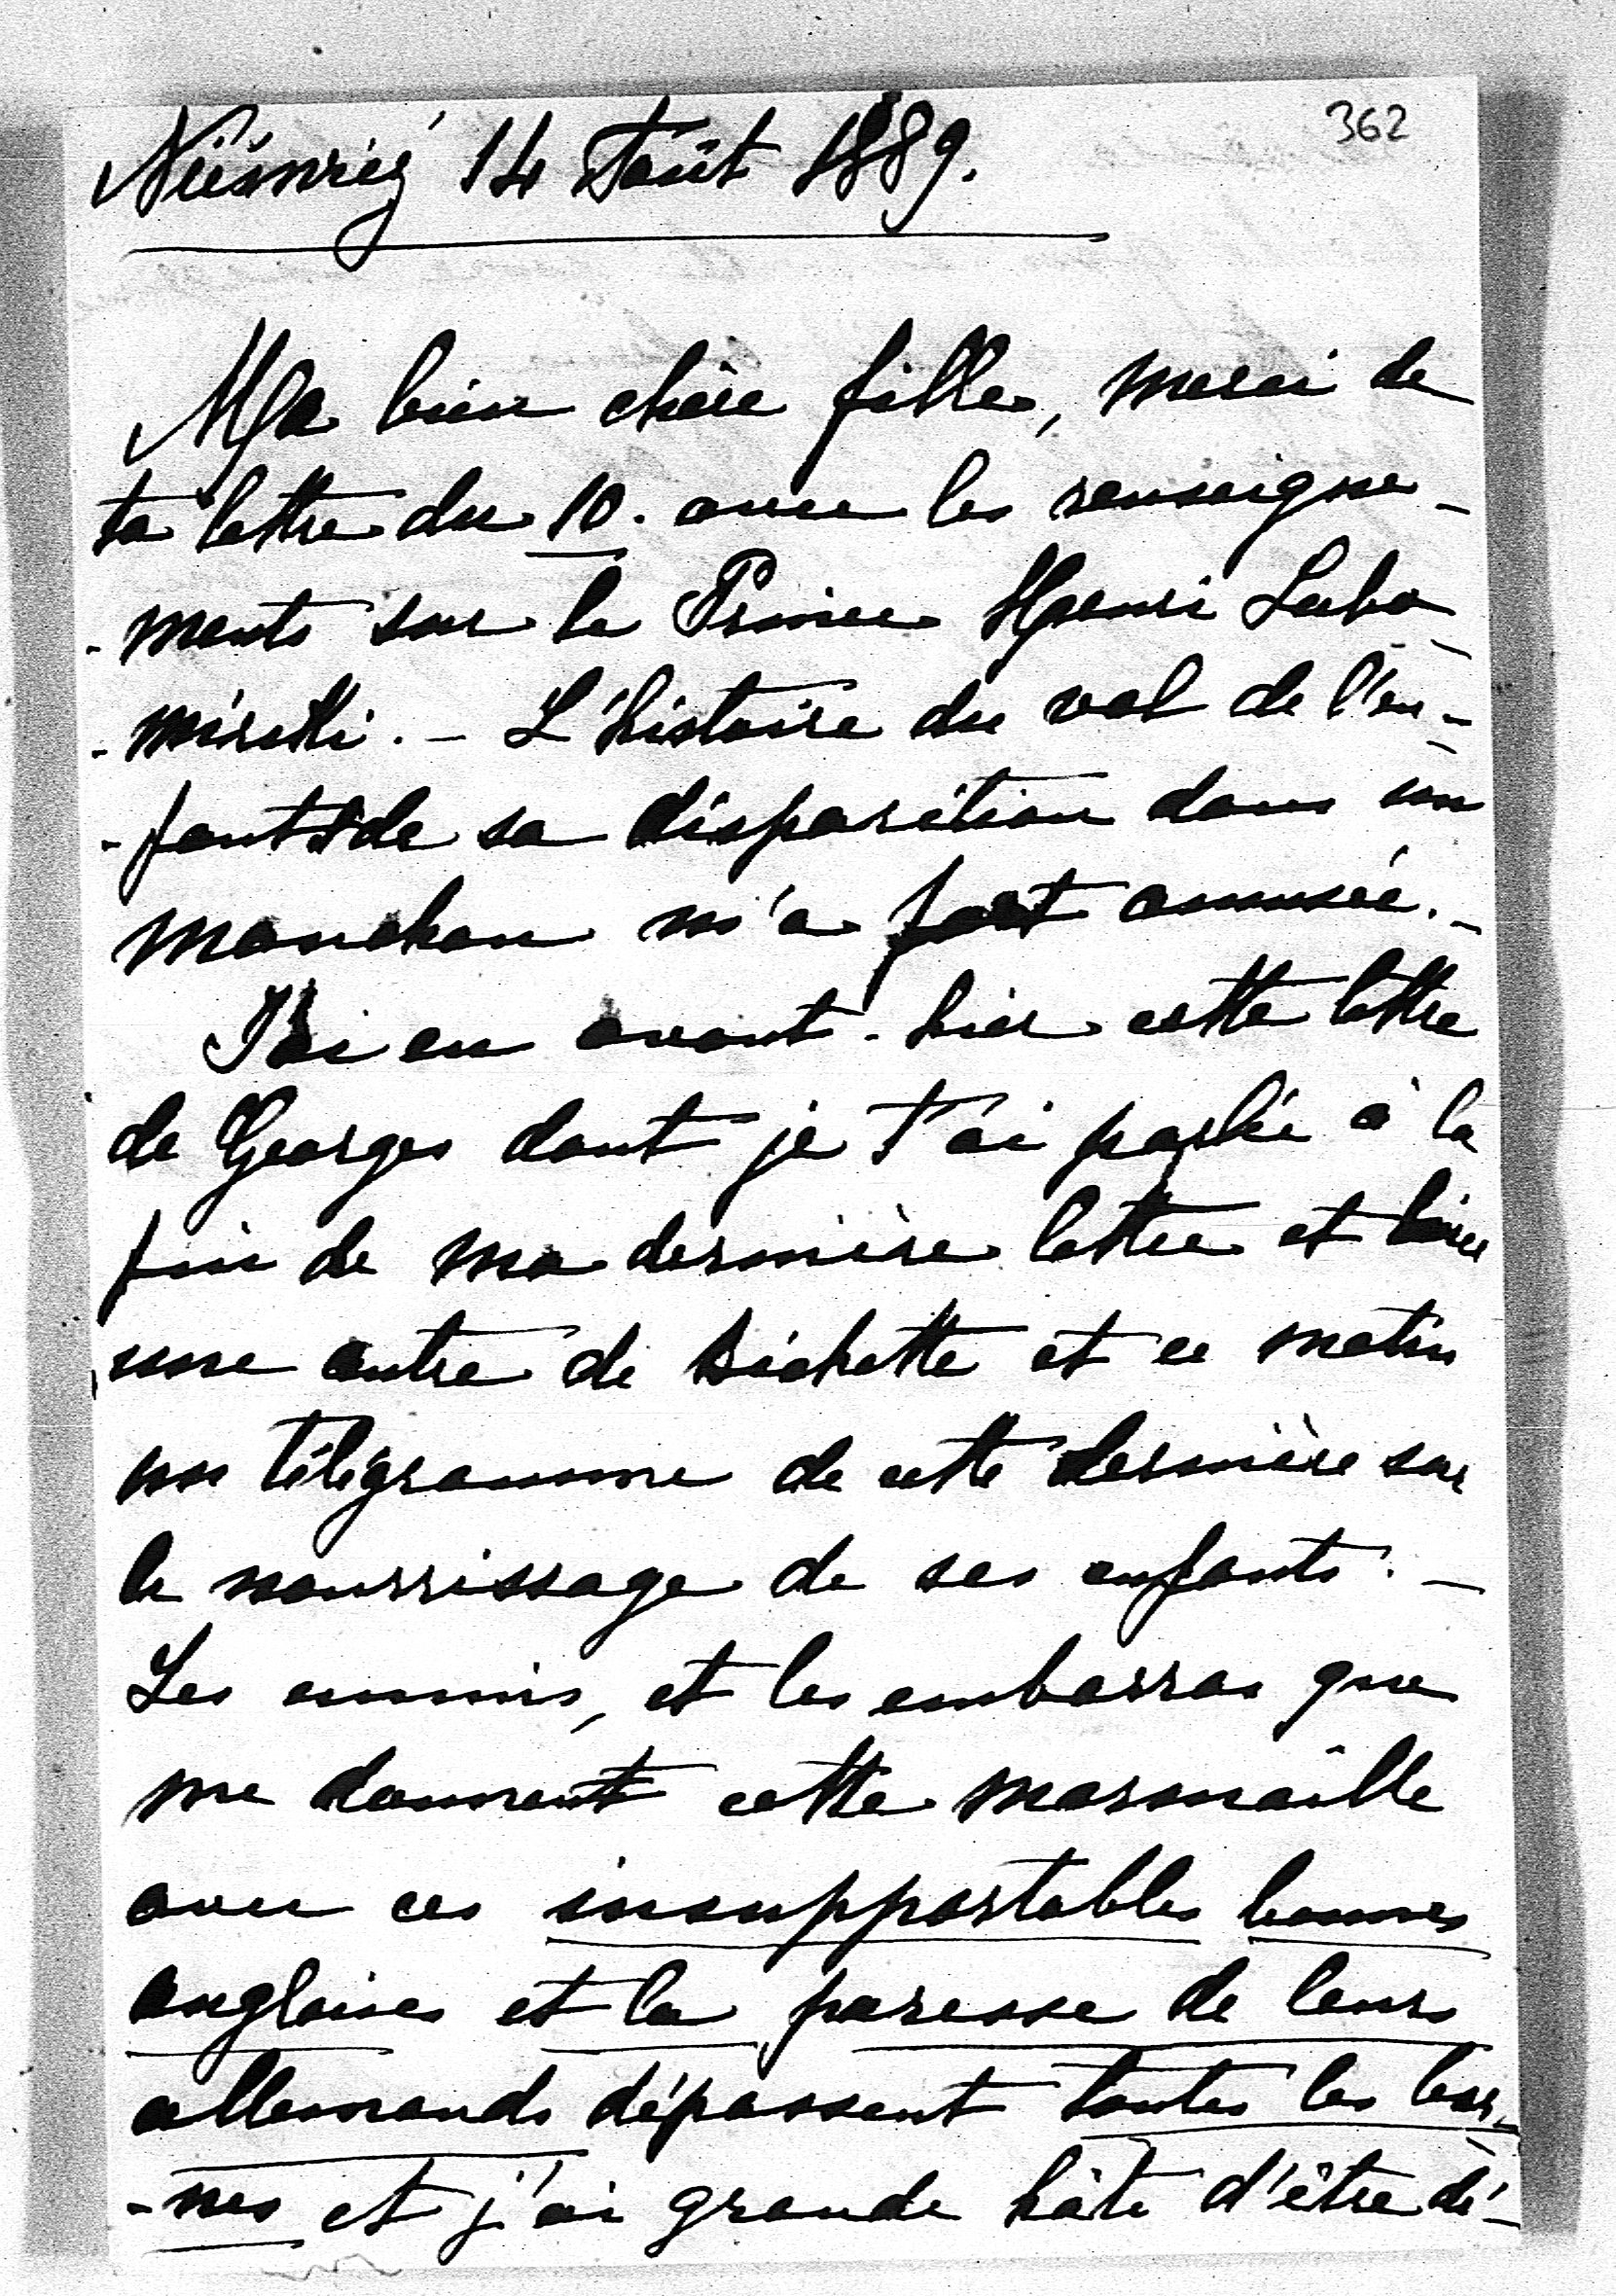 362
14 Août 1889.
Ma bien chère fille, merci de
ta lettre du 10. avec les renseigne-
-ments sur le Prince Henri Lubo-
-mirski. - L'histoire du vol de l'en-
-fant & de sa disparition dans un
manchon m'a fort amusée. -
J'ai eu avant-hier cette lettre
de Georges dont je t'ai parlée à la
fin de ma dernière lettre et hier
une autre de Bichette et ce matin
un télégramme de cette dernière sur
le nourrissage de ses enfants. -
Les ennuis, et les embarras que
me donnent cette marmaille
avec ces insupportables bonnes
anglaises et la paresse de leurs
allemands dépassent toutes les bor-
-nes et j'ai grande hâte d'être dé-